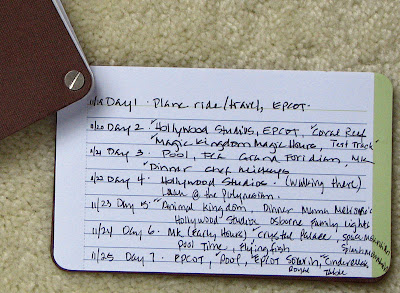 11/19 Day 1 · Plane ride/travel, EPCOT·
11/20 Day 2 · Hollywood Studios, EPCOT, "Coral Reef"
"Magic Kingdom Magic Hours, Test Track
11/21 Day 3 · Pool, Grand Floridian, MK
"Dinner Chef Mickeys
11/22 Day 4 · Hollywood Studios · (Walking there)
@ the Polynesian
11/23 Day 5 · "Animal Kingdom, Dinner
Hollywood Studios Osborne Family Lights
11/24 Day 6 · MK (Early Hours) "Crystal Palace, Space Mountain
Pool Time, Flying fish Splash Mountain
11/25 Day 7 · EPCOT, "Pool, EPCOT Soarin, "Cinderellas
Royal Table